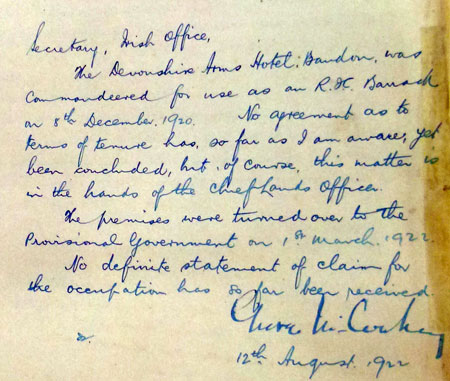 Secretary, Irish Office,
The Devonshire Arms Hotel: Bandon, was
commandeered for use as an R.I.C. Barrack
on 8th December. 1920. No agreement as to
terms of tenure has, so far as I am aware, yet
been concluded, but, of course, this matter is
in the hands of the Chief Lands Officer.
The premises were turned over to the
Provisional Government on 1st March. 1922.
No definite statement of claim for
the occupation has so far been received.
12th August. 1922